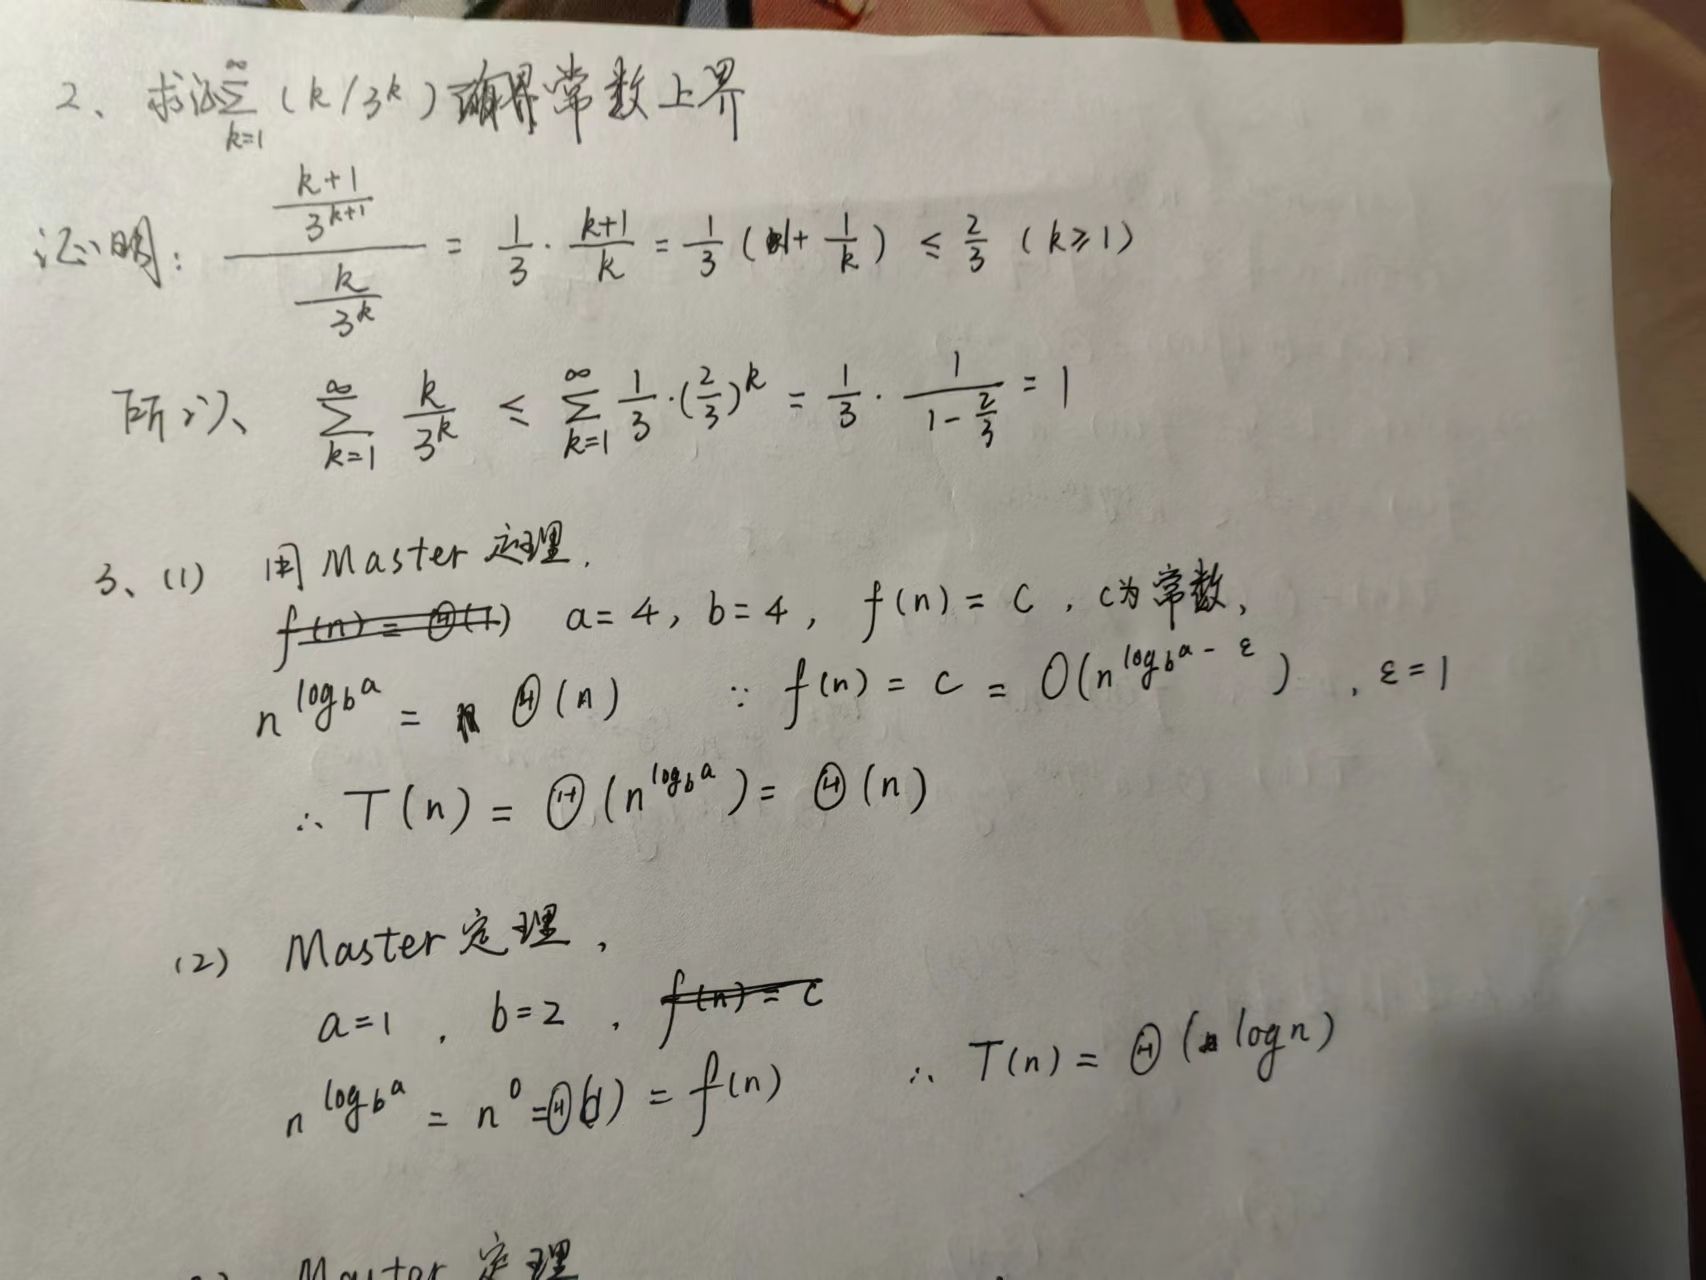 2、求证∑_{k=1}^{∞} (k/3^k) 有界常数上界
证明: \frac{\frac{k+1}{3^{k+1}}}{\frac{k}{3^k}} = \frac{1}{3}·\frac{k+1}{k} = \frac{1}{3}(1+\frac{1}{k}) ≤ \frac{2}{3} (k≥1)
所以 ∑_{k=1}^{∞} \frac{k}{3^k} ≤ ∑_{k=1}^{∞} \frac{1}{3}·(\frac{2}{3})^k = \frac{1}{3}·\frac{1}{1-\frac{2}{3}} = 1
3、(1) 用Master定理.
f(n) = Θ(1) a=4, b=4, f(n) = c, c为常数,
n^{log_b a} = Θ(n) ∵ f(n) = c = O(n^{log_b a - ε}), ε=1
∴ T(n) = Θ(n^{log_b a}) = Θ(n)
(2) Master定理,
a=1, b=2, f(n)=c
n^{log_b a} = n^0 = Θ(1) = f(n) ∴ T(n) = Θ(logn)
Master 定理